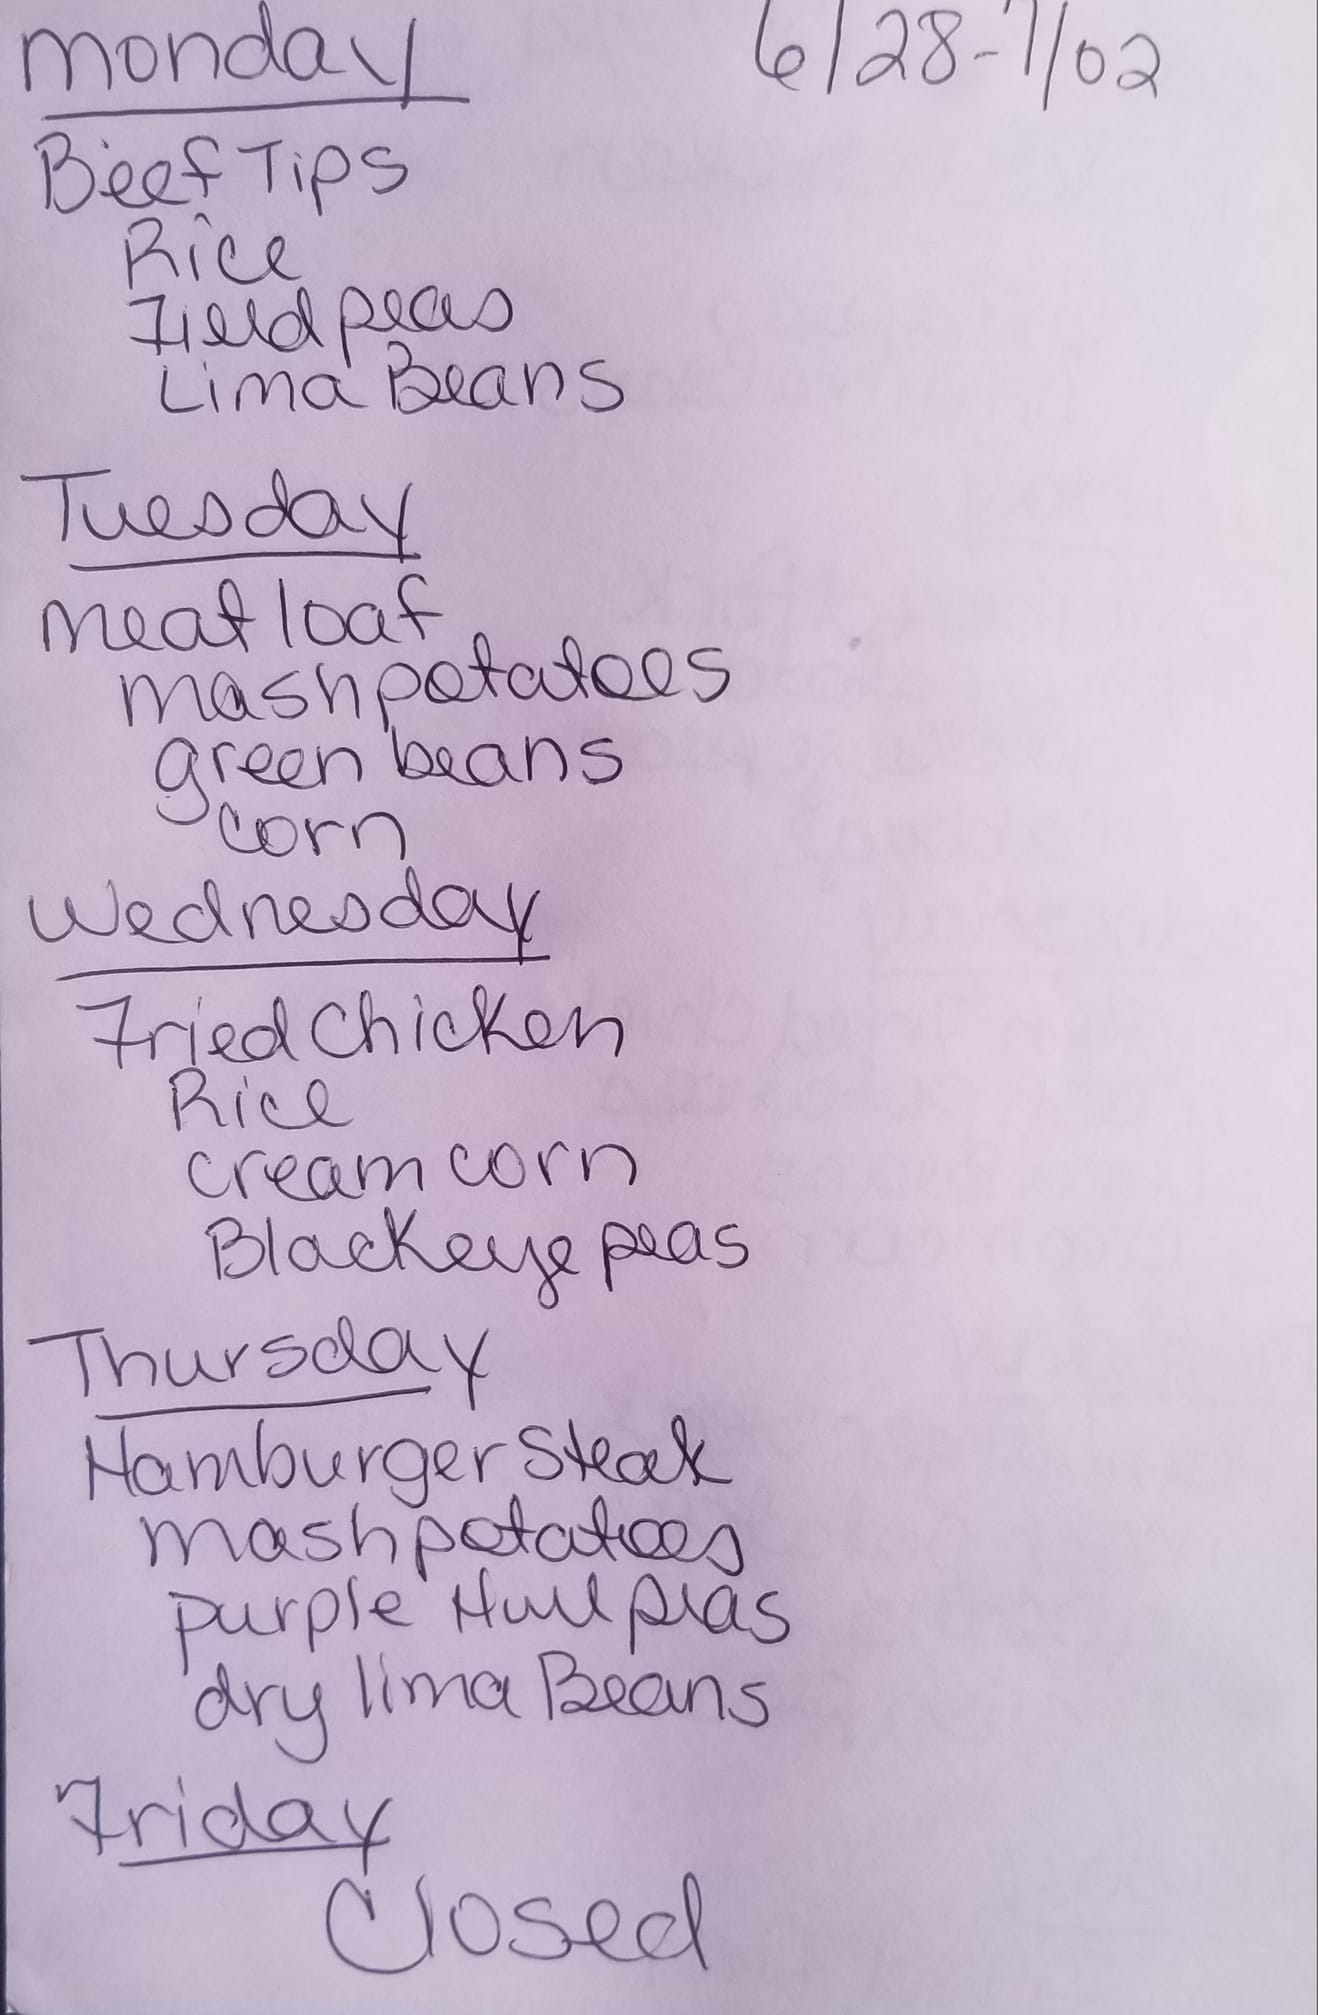 monday 6/28-7/02
Beef Tips
Rice
Field peas
Lima Beans
Tuesday
meat loaf
mash potatoes
green beans
corn
Wednesday
Fried Chicken
Rice
cream corn
Blackeye peas
Thursday
Hamburger Steak
mash potatoes
purple Hull peas
dry lima Beans
Friday
Closed